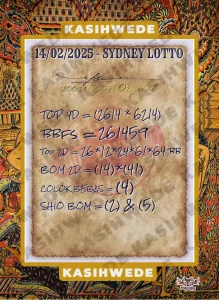 KASIHWEDE
14/02/2025 - SYDNEY LOTTO
100% Original
TOP 4D = (2614 * 6214)
BBFS = 261459
TOP 2D = 26*12*24*61*64 BB
BOM 2D = (14)*(41)
COLOK BEBAS = (4)
SHIO BOM = (2) & (5)
KASIHWEDE